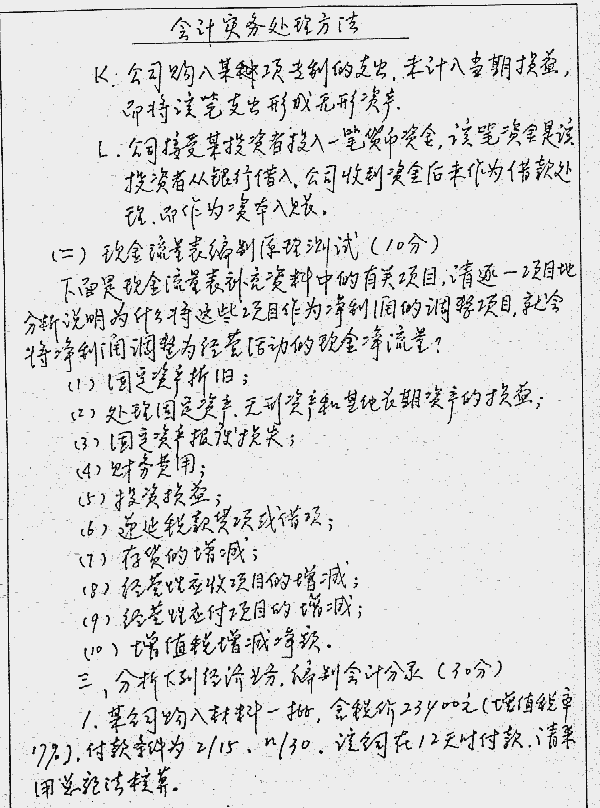 会计实务处理方法
K. 公司购入某种项专利的支出，未计入当期损益，
即将该笔支出形成无形资产.
L. 公司接受某投资者投入一笔货币资金，该笔资金是该
投资者从银行借入，公司收到资金后未作为借款处
理，即作为资本入账。
(二) 现金流量表编制原理测试 (10分)
下面是现金流量表补充资料中的有关项目，请逐一项目地
分析说明为什么将这些项目作为净利润的调整项目，就会
将净利润调整为经营活动的现金净流量?
(1) 固定资产折旧;
(2) 处理固定资产、无形资产和其他长期资产的损益;
(3) 固定资产报废损失;
(4) 财务费用;
(5) 投资损益;
(6) 递延税款贷项或借项;
(7) 存货的增减;
(8) 经营性应收项目的增减;
(9) 经营性应付项目的增减;
(10) 增值税增减净额.
三、分析下列经济业务，编制会计分录 (30分)
1. 某公司购入材料一批，含税价23400元(增值税率
17%)，付款条件为2/15、n/30. 该公司在12天时付款，请采
用总额法核算。